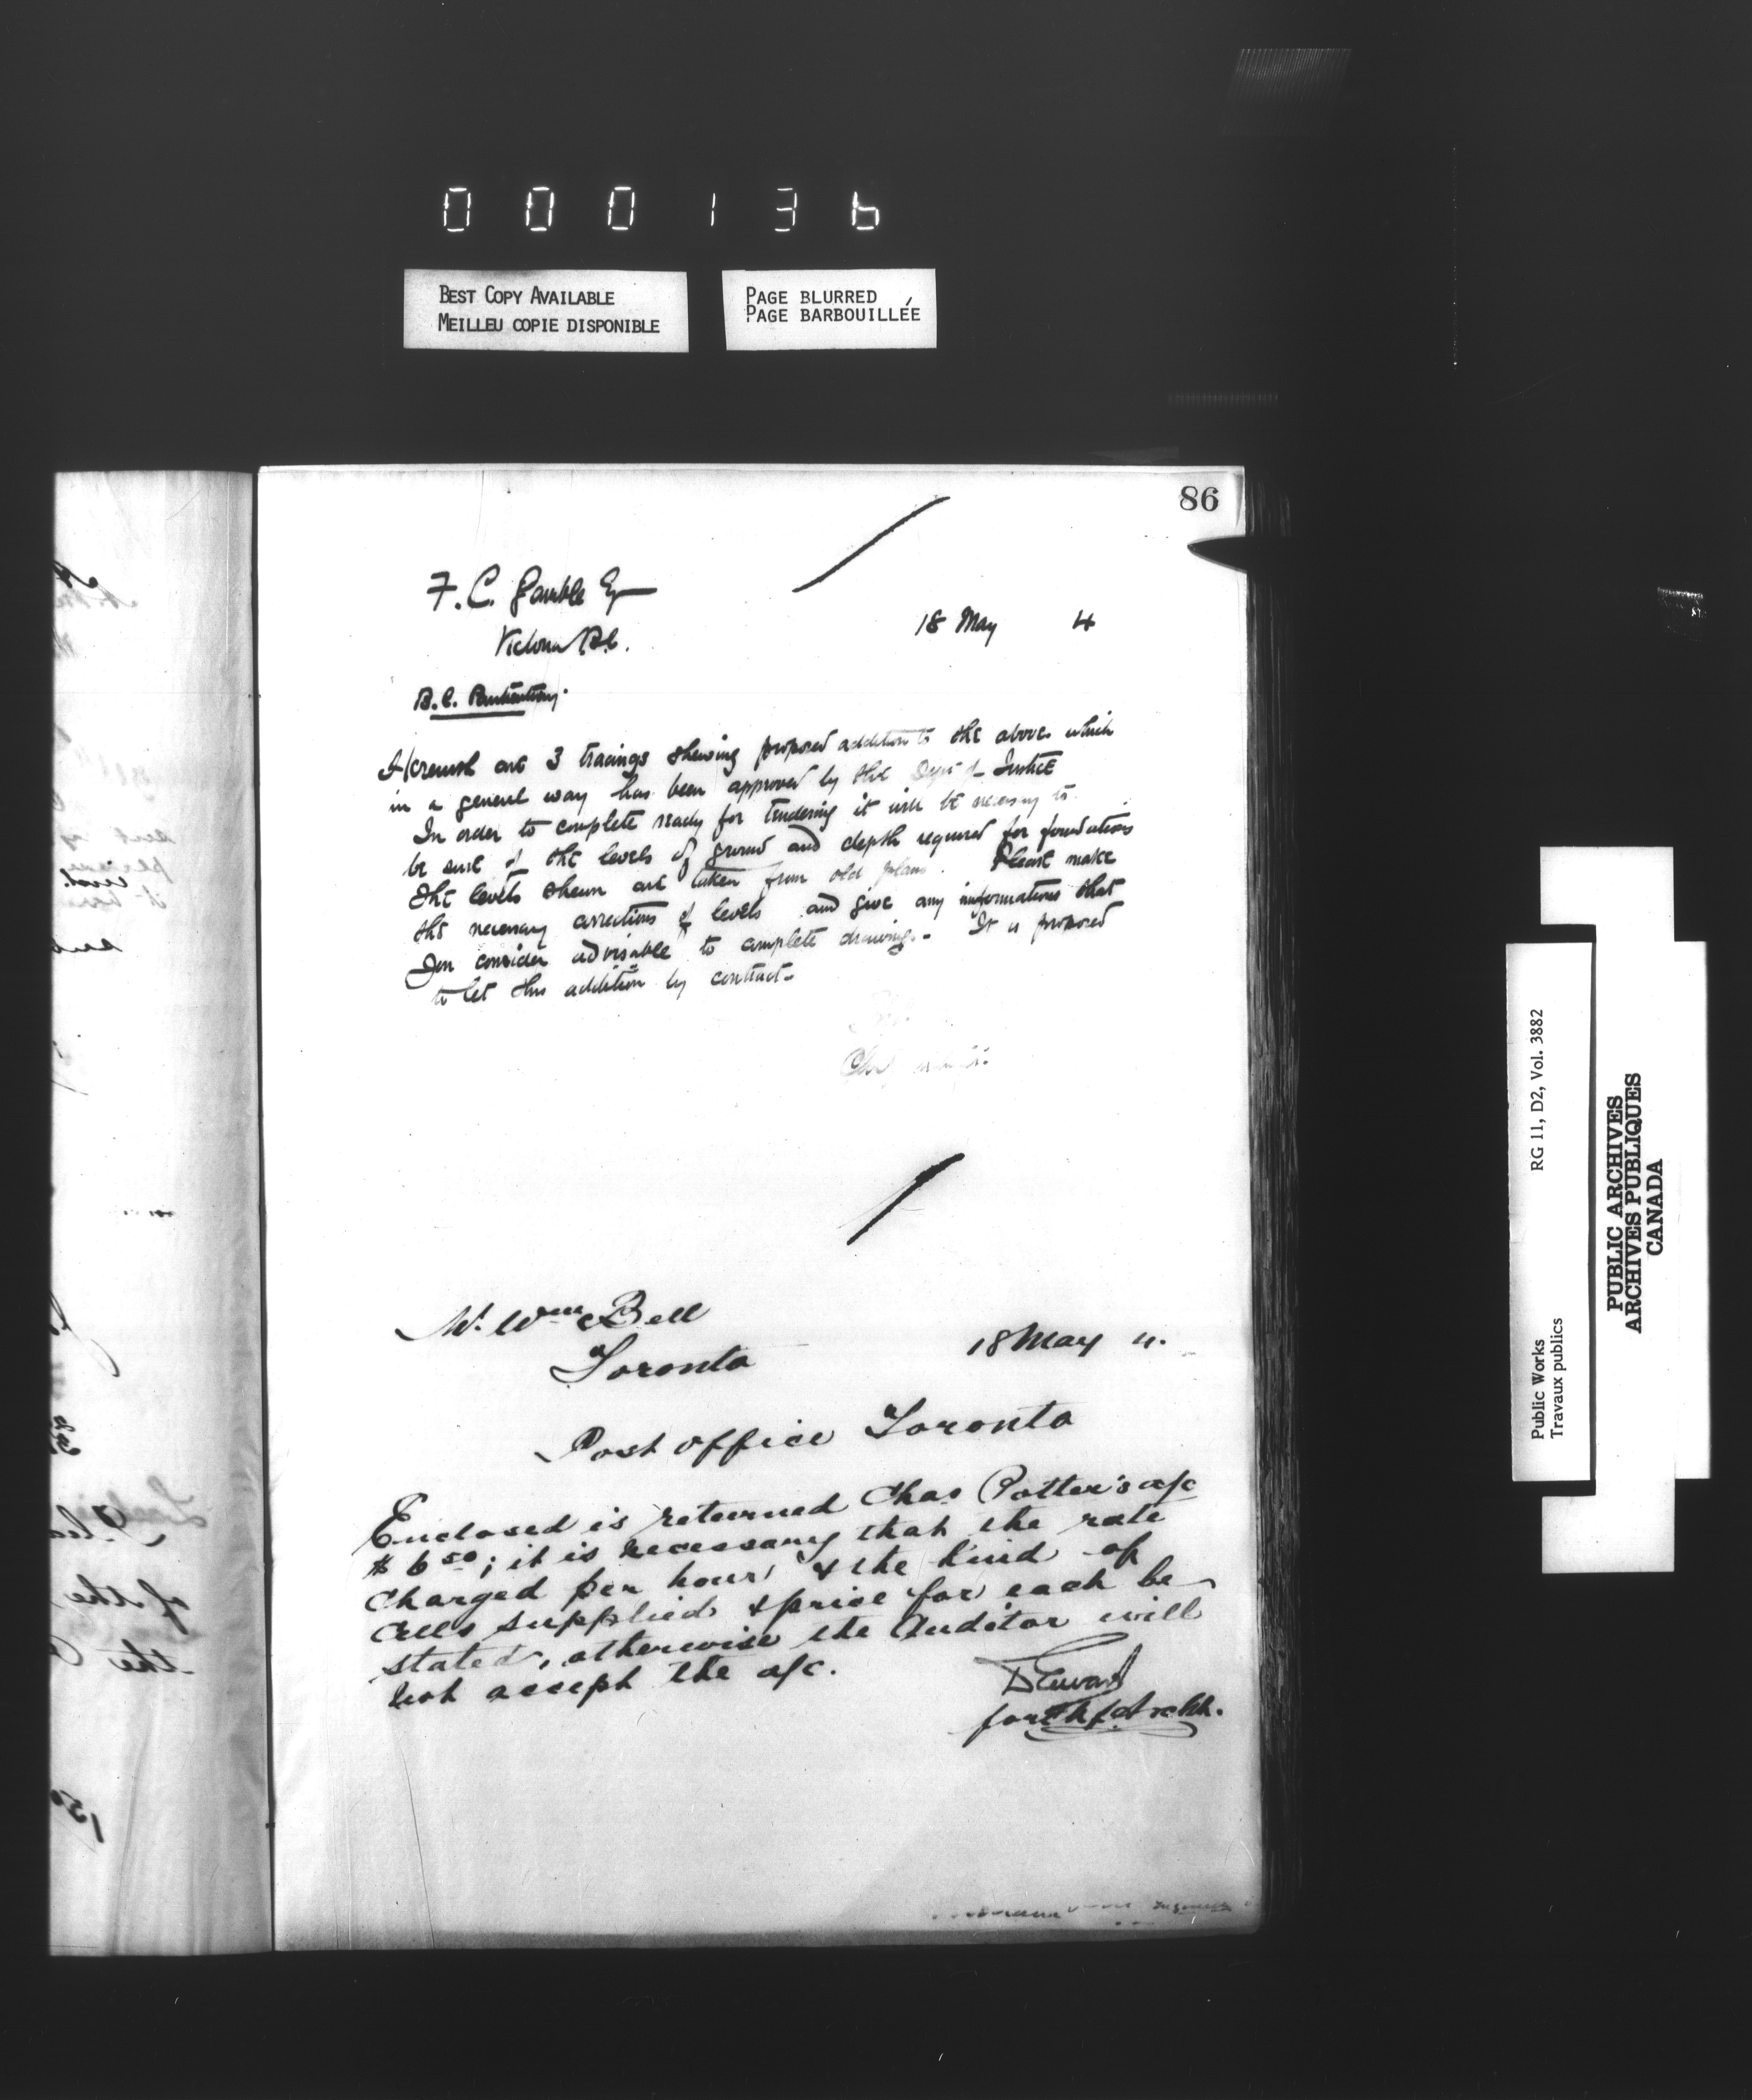 000136
BEST COPY AVAILABLE
MEILLEU COPIE DISPONIBLE
PAGE BLURRED
PAGE BARBOUILLÉE
86
F. C. Gamble Esq
Victoria B.C.
18 May 4
B.C. Penitentiary.
Herewith are 3 tracings shewing proposed addition to the above which
in a general way has been approved by the Dept of Justice
In order to complete ready for tendering it will be necessary to
be sure of the levels of ground and depth required for foundations
The levels shewn are taken from old plans. Please make
the necessary corrections of levels and give any informations that
You consider advisable to complete drawings - It is proposed
to let this addition by contract -
Mr. Wm Bell
Toronto
18 May 4.
Post Office Toronto
Enclosed is returned Chas Potter's a/c
$ 6 50; it is necessary that the rate
charged per hour & the kind of
cells supplied & price for each be
stated, otherwise the Auditor will
not accept the a/c.
D Ewart
for Chf Archt.
RG 11, D2, Vol. 3882
Public Works
Travaux publics
PUBLIC ARCHIVES
ARCHIVES PUBLIQUES
CANADA